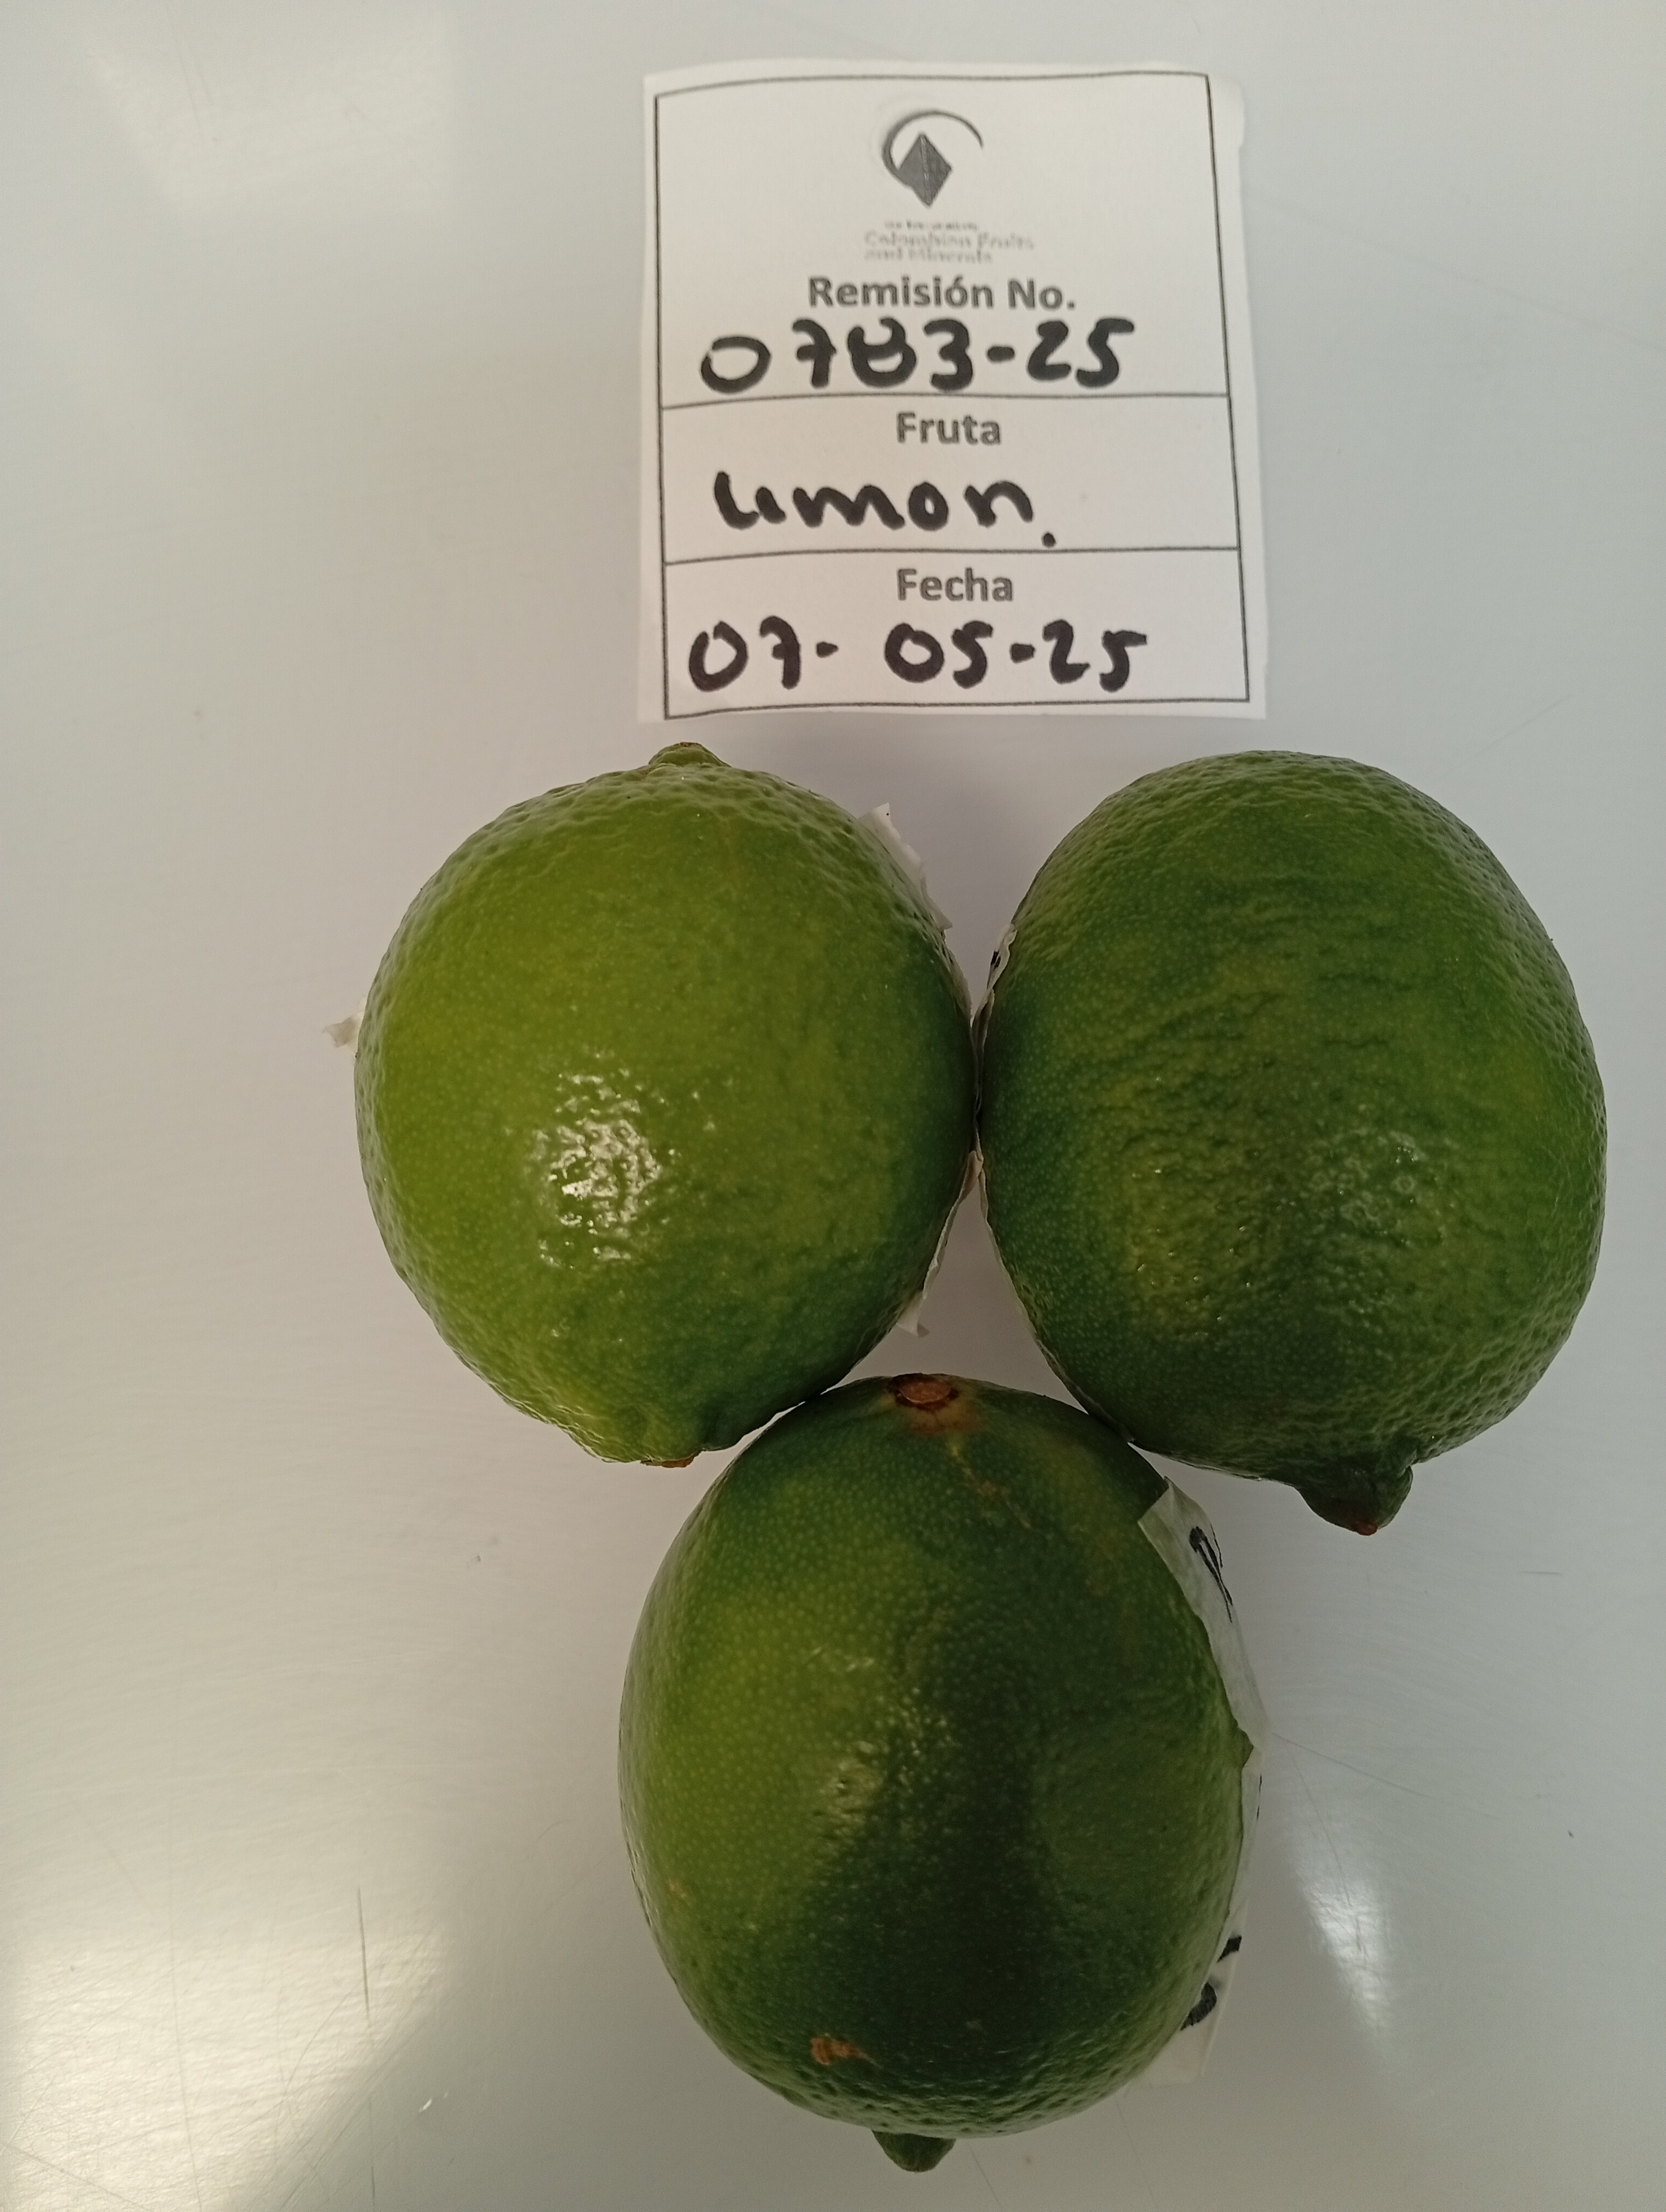 Colombian Fruits
and Minerals
Remisión No.
0783-25
Fruta
Limon.
Fecha
07-05-25